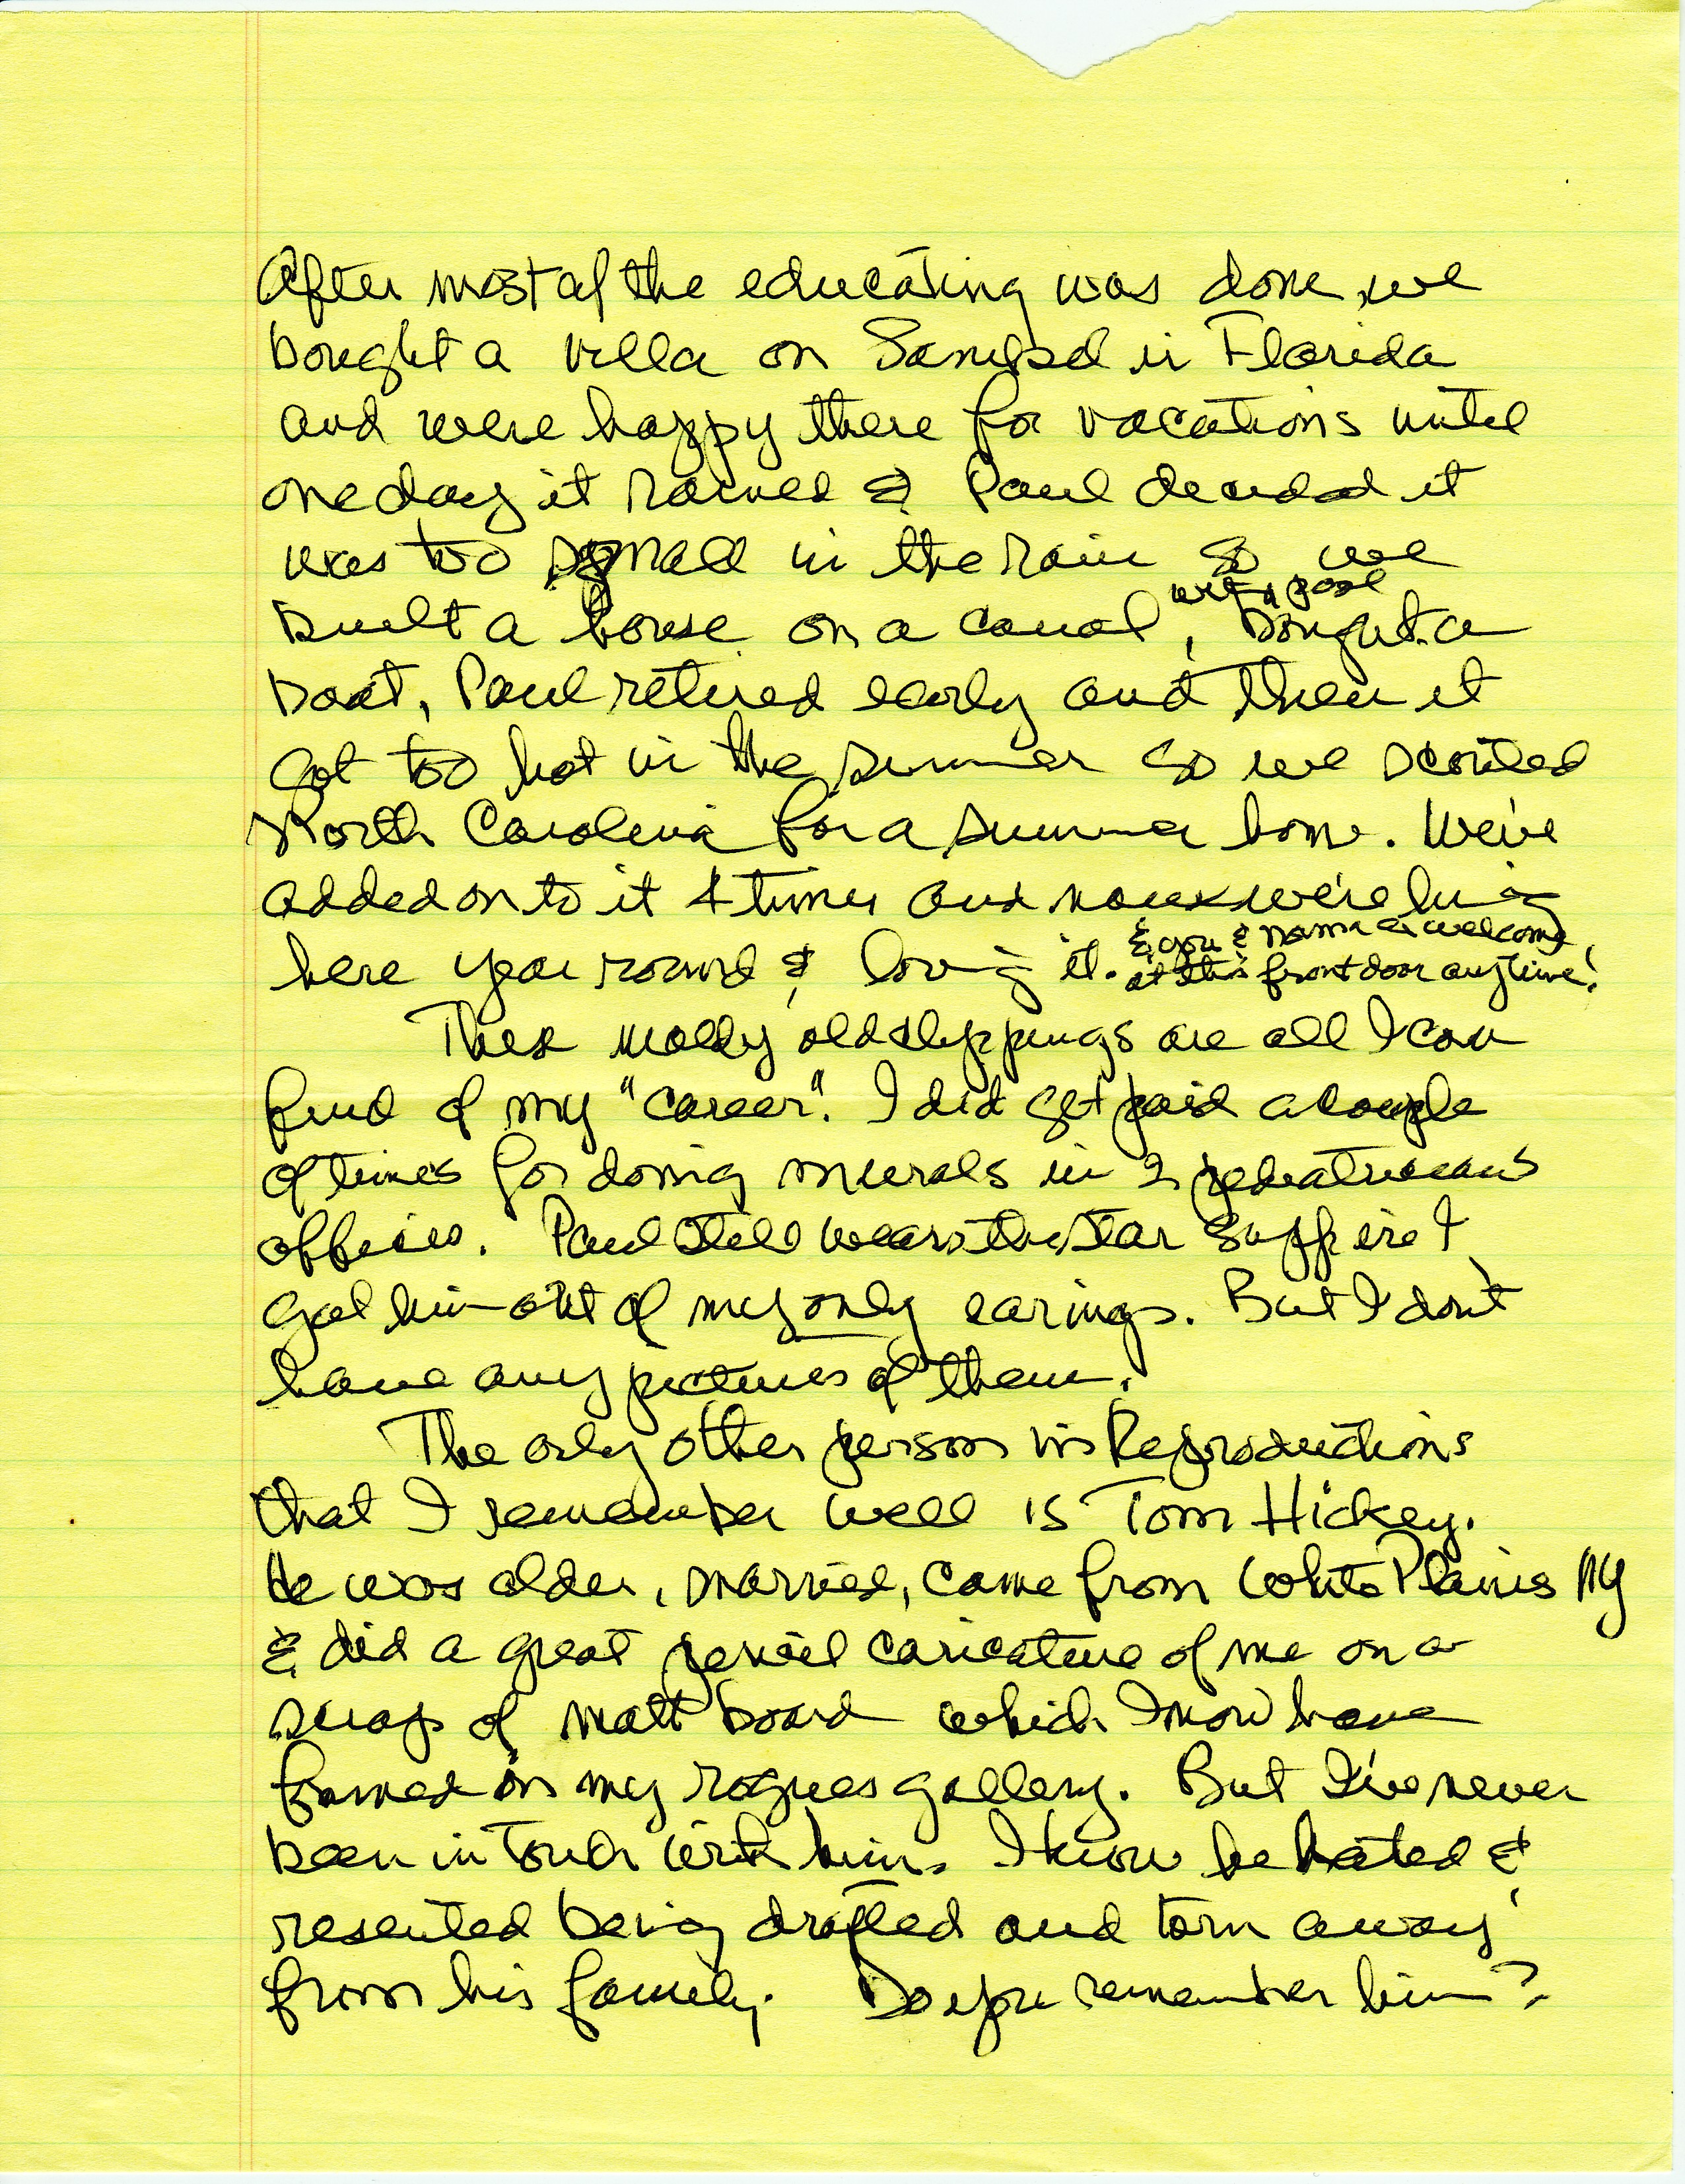 After most of the educating was done, we
bought a villa on Sanibel in Florida
and were happy there for vacations until
one day it rained & Paul decided it
was too small in the rain so we
with a pool
built a house on a canal, bought a
boat, Paul retired early and then it
got too hot in the summer so we scouted
North Carolina for a summer home. We've
added on to it 4 times and now we're living
here year round & loving it. & you & Norma are welcome
at this front door anytime!
These moldy old clippings are all I can
find of my "career". I did get paid a couple
of times for doing murals in 2 pediatricians
offices. Paul still wears the star sapphire I
got him out of my only earings. But I don't
have any pictures of them.
The only other person in Reproductions
that I remember well is Tom Hickey.
He was older, married, came from White Plains NY
& did a great pencil caricature of me on a
scrap of matt board which I now have
framed in my rogues gallery. But I've never
been in touch with him. I know he hated &
resented being drafted and torn away
from his family. Do you remember him?